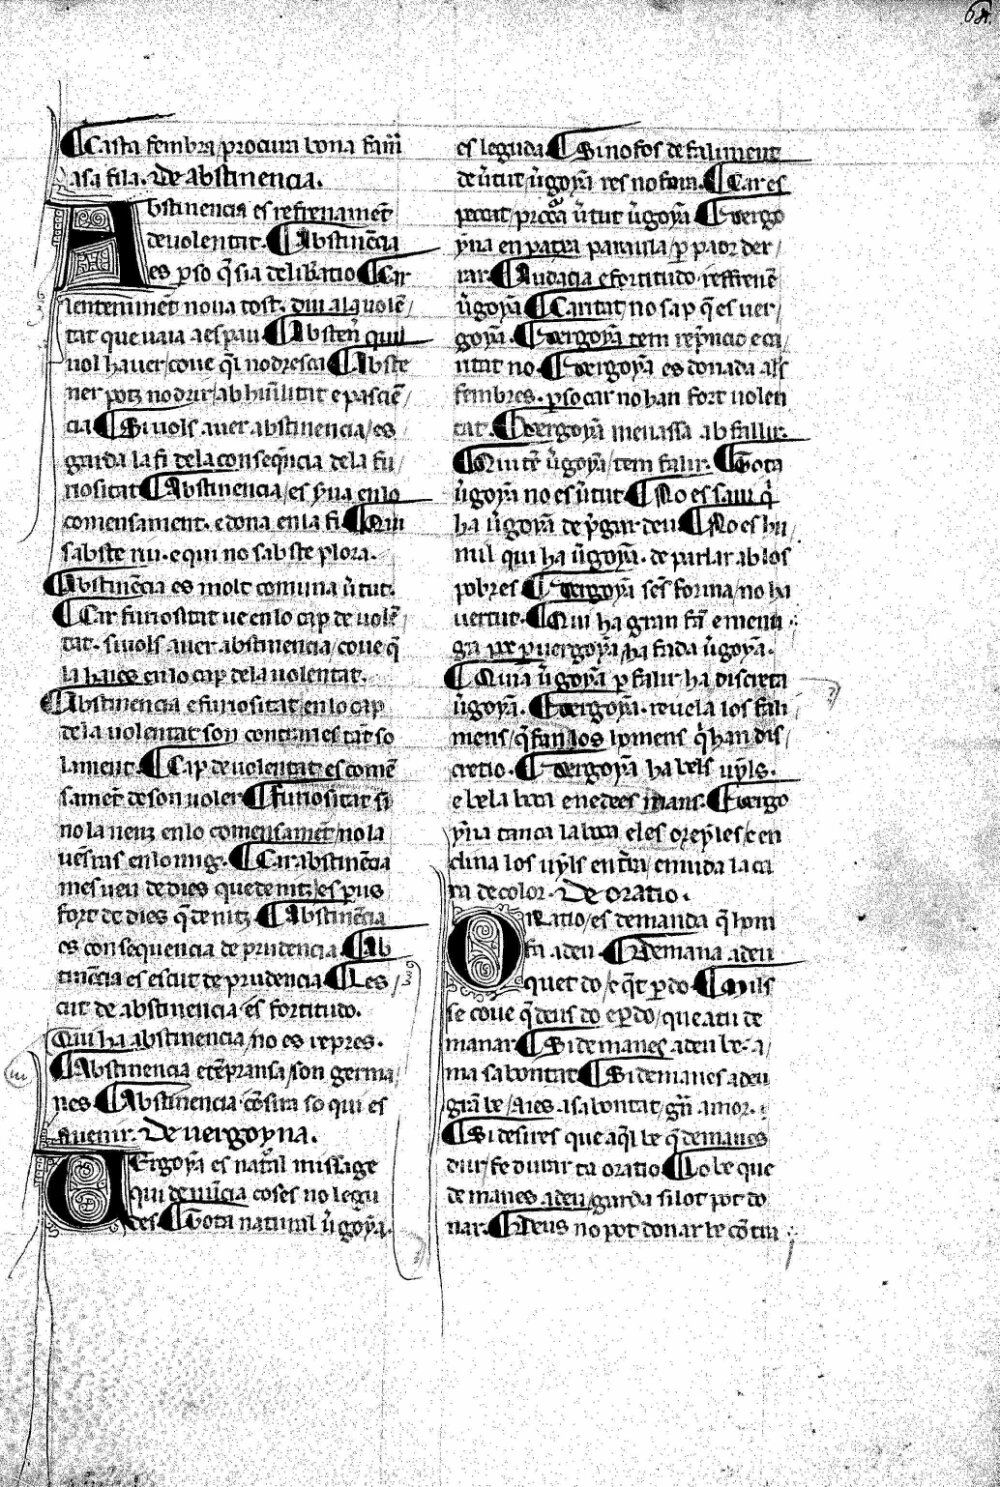 64.
¶ Casta fembra / procura bona fama
asa fila. De abstinencia.
Abstinencia es refrenamēt
de uolentat. ¶ Abstinēcia
es p so q̄ sia deliƀatio ¶ Car
tat que uaia a espau. ¶ Absten̄
uol hauer / coue q̄l nodresca ¶ Abste
ner potz nodrir / ab humilitat e pasciē /
cia ¶ Si uols auer abstinencia / es
garda la fi de la conseq̄ncia de la fu /
riositat ¶ Abstinencia / es yuia en lo
comensament. e dona en la fi ¶ Qui
sabste riu. e qui no sabste plora.
¶ Abstinēcia es molt comuna ūtut.
¶ Car furiositat ue en lo cap de uolē
tat. si uols auer abstinencia / coue q̄
la haies en lo cap de la uolentat.
¶ Abstinencia e furiositat / en lo cap
de la uolentat son contraries tāt so
lament. ¶ Cap de uolentat es comē
samēt de son uoler ¶ furiositat si
no la uenz en lo comensamēt / no la
uēsras en lo mig. ¶ Car abstinēcia
mes ueu de dies que de nitz / es p̱us
fort de dies q̄ de nitz ¶ Abstinēcia
es consequencia de prudencia ¶ Ab
tinēcia es escut de prudencia ¶ Les /
cut de abstinencia es fortitudo.
Qui ha abstinencia / no es repres.
¶ Abstinencia e tēpransa / son germa /
nes ¶ Abstinencia cōsira so qui es
auenir. De uergoyna.
Uergoya̅ es nat̄al missatge
qui denūcia coses no legu
des ¶ Tota natural ūgoya̅.
es leguda ¶ Si no fos de faliment
de ūtut ūgoya̅ res no fora. ¶ Car es
peccat / p̱ cea ūtut ūgoya̅ ¶ Vergo
yna en patra paraula / p̱ paor der /
rar ¶ Audacia e fortitudo reffrenē
ūgoya̅ ¶ Caritat / no sap q̄ es uer /
goya̅. ¶ Vergoya̅ tem rep̄ncio e ca
ritat no. ¶ Vergoya̅ es donada als
fembres. p̱so car no han fort uolen
tat. ¶ Vergoya̅ menassa ab fallir.
¶ Qui tē ūgoya̅ / tem falir. ¶ Tota
ūgoya̅ no es ūtut ¶ No es saui q̄
ha ūgoya̅ de p̄gar deu ¶ No es hu
mil qui ha ūgoya̅. de parlar ab los
pobres ¶ Vergoya̅ sēs forma / no ha
uertut. ¶ Qui ha gran fam e menu
ga p̱ uergoya̅ / ha fada ūgoya̅.
¶ Qui a ūgoya̅ p̱ falir ha discreta
ūgoya̅. ¶ Vergoya̅. reuela los fali
mens / q̄ fan los homens q̄ han dis /
cretio. ¶ Vergoya̅ ha bels uyls.
e bela boca e nedees mans. ¶ Vergo
yna tanca la boca e les oreyles / e en
clina los uyls en tra / e muda la ca
ra de color. De oratio.
Oratio / es demanda q̄ hom
fa a deu. ¶ Demana a deu
quet do / e q̄t p̱do ¶ Mils
se coue q̄ deus do e p̱do / que a tu de
manar ¶ Si demanes a deu be. a /
ma sa bontat ¶ Si demanes a deu
gra̅ be / aies a sa bontat / gra̅ amor.
¶ Si desires que aq̄l be q̄ demanes
dur / fe durar ta oratio ¶ Lo be que
demanes a deu / garda si lot pot do
nar. ¶ Deus no pot donar be cōtra